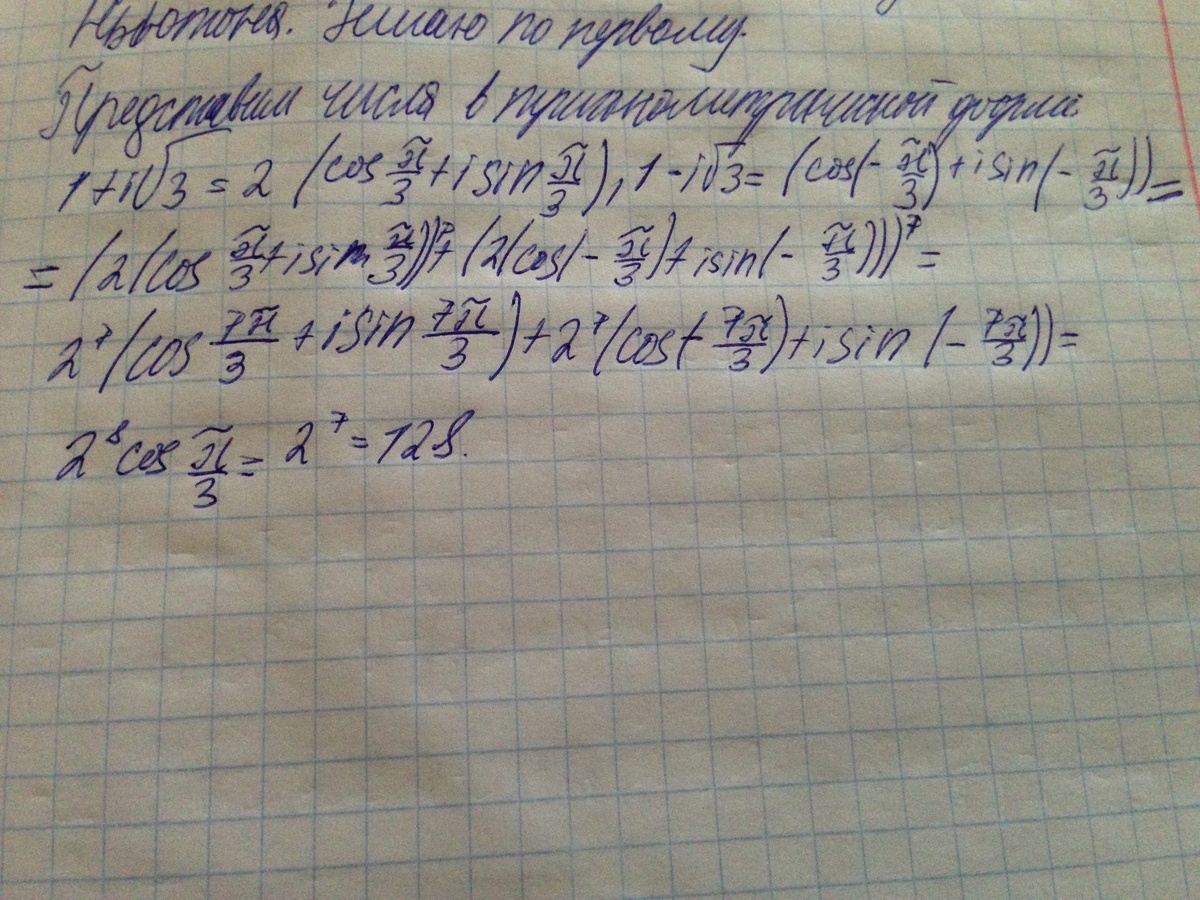 Ньютона. Решаю по первому.
Представим числа в тригонометрической форме.
1+i√3 = 2 (cos π/3 + i sin π/3), 1-i√3 = (cos(-π/3) + i sin(-π/3)) =
= (2(cos π/3 + i sin π/3))^7 + (2(cos(-π/3) + i sin(-π/3)))^7 =
2^7 (cos 7π/3 + i sin 7π/3) + 2^7 (cos(-7π/3) + i sin(-7π/3)) =
2^8 cos π/3 = 2^7 = 128.